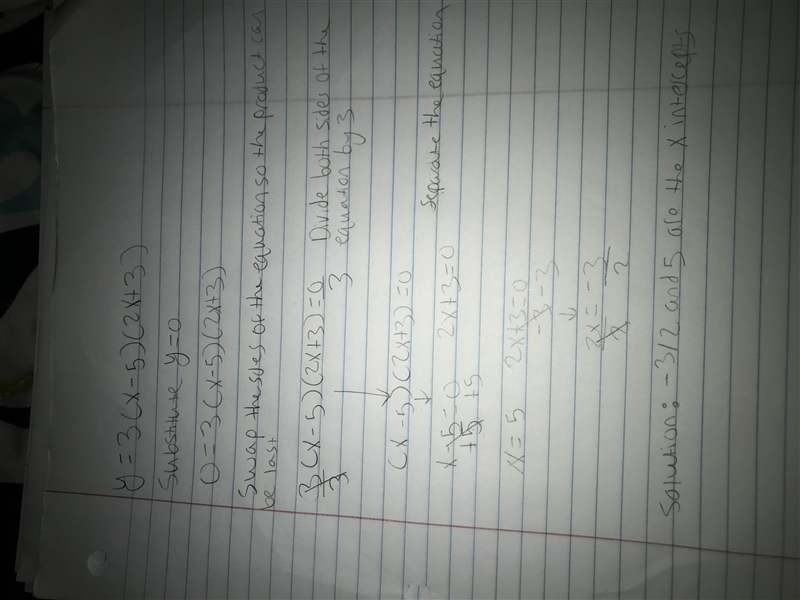 y = 3(x-5)(2x+3)
Substitute y=0
0=3(x-5)(2x+3)
Swap the sides of the equation so the product can
be last
3(x-5)(2x+3)=0 Divide both sides of the
3 3 equation by 3
(x-5)(2x+3)=0
x-5=0 2x+3=0 Separate the equation
+5 +5
x=5 2x+3=0
-3 -3
2x=-3
2 2
Solution: -3/2 and 5 are the x intercepts